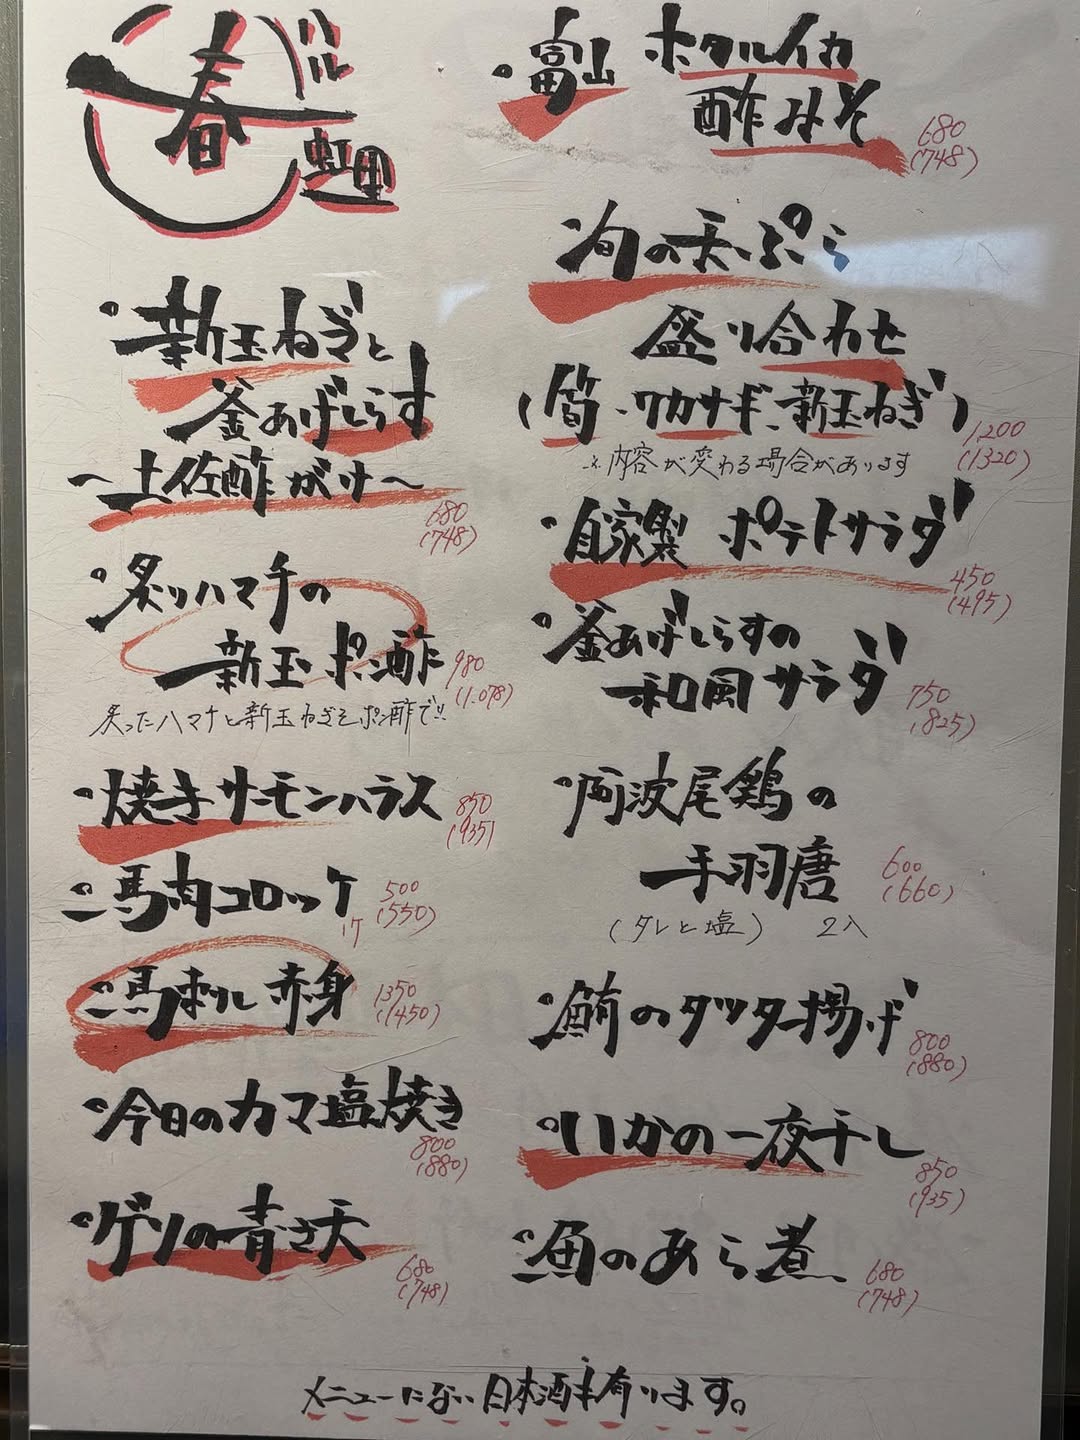 春
バル
虹里
・新玉ねぎと
釜あげしらす
～土佐酢がけ～
680
(748)
・炙りハマチの
新玉ポン酢
980
(1.078)
炙ったハマチと新玉ねぎをポン酢で!!
・焼きサーモンハラス
850
(935)
・馬肉コロッケ
500
(550)
1ケ
・馬刺し赤身
1350
(1450)
・今日のカマ塩焼き
800
(880)
・ゲソの青さ天
680
(748)
・富山 ホタルイカ
酢みそ
680
(748)
・旬の天ぷら
盛り合わせ
(筍、ワカサギ、新玉ねぎ)
1,200
(1320)
※内容が変わる場合があります
・自家製 ポテトサラダ
450
(495)
・釜あげしらすの
和風サラダ
750
(825)
・阿波尾鶏の
手羽唐
600
(660)
(タレと塩) 2入
・鮪のタツタ揚げ
800
(880)
・いかの一夜干し
850
(935)
・魚のあら煮
680
(748)
メニューにない日本酒も有ります。